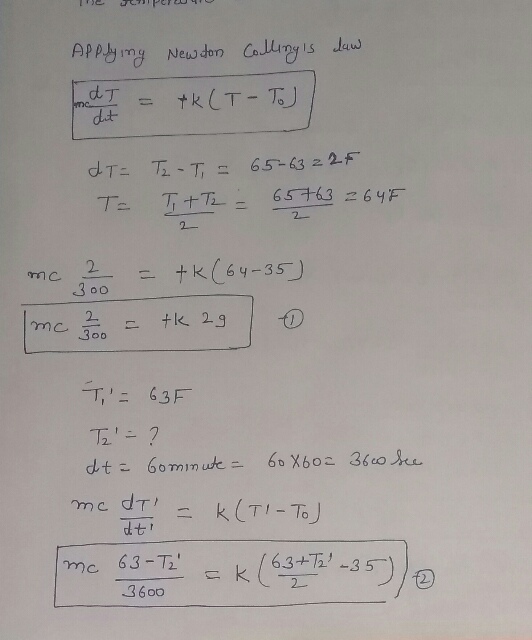 The temperature
Applying Newdon Collingis law
mc dT/dt = +k(T - T₀)
dT = T₂ - T₁ = 65-63 = 2F
T = (T₁ + T₂)/2 = (65+63)/2 = 64F
mc 2/300 = +k(64-35)
mc 2/300 = +k 29 ①
T₁' = 63F
T₂' = ?
dt = 60minute = 60X60= 3600 See
mc dT'/dt' = k(T' - T₀)
mc (63-T₂')/3600 = k((63+T₂')/2 - 35) ②